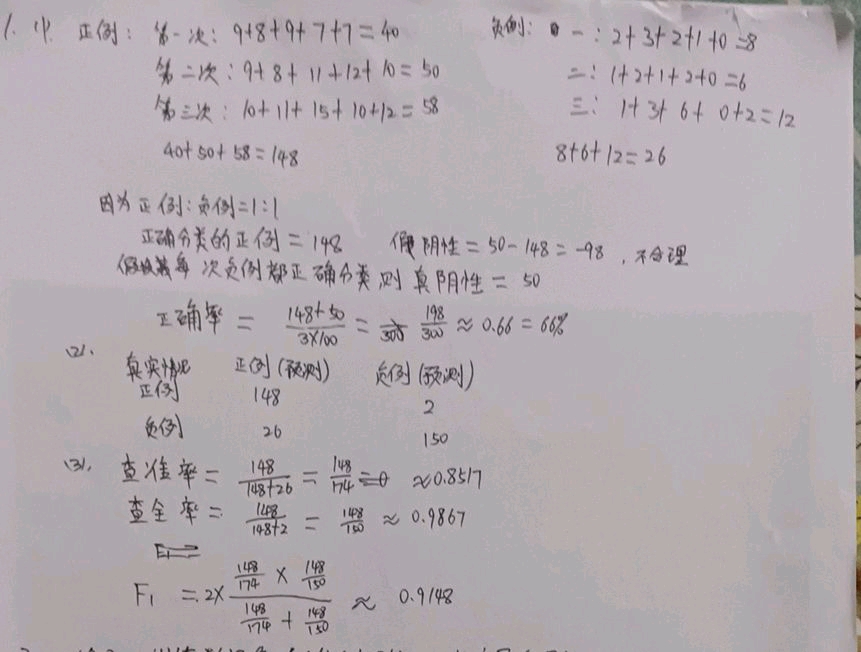 1. (1). 正例: 第一次: 9+8+9+7+7=40 负例: 一: 2+3+2+1+0=8
第二次: 9+8+11+12+10=50 二: 1+2+1+2+0=6
第三次: 10+11+15+10+12=58 三: 1+3+6+0+2=12
40+50+58=148 8+6+12=26
因为正例:负例=1:1
正确分类的正例=148 假阴性=50-148=-98, 不合理
每次负例都正确分类 则真阴性=50
正确率= (148+50)/(3×100) = 198/300 ≈0.66=66%
(2).
真实情况 正例(预测) 负例(预测)
正例 148 2
负例 26 150
(3). 查准率= 148/(148+26) = 148/174 ≈0.8517
查全率= 148/(148+2) = 148/150 ≈ 0.9867
F₁ =2× (148/174 × 148/150)/(148/174 + 148/150) ≈ 0.9148